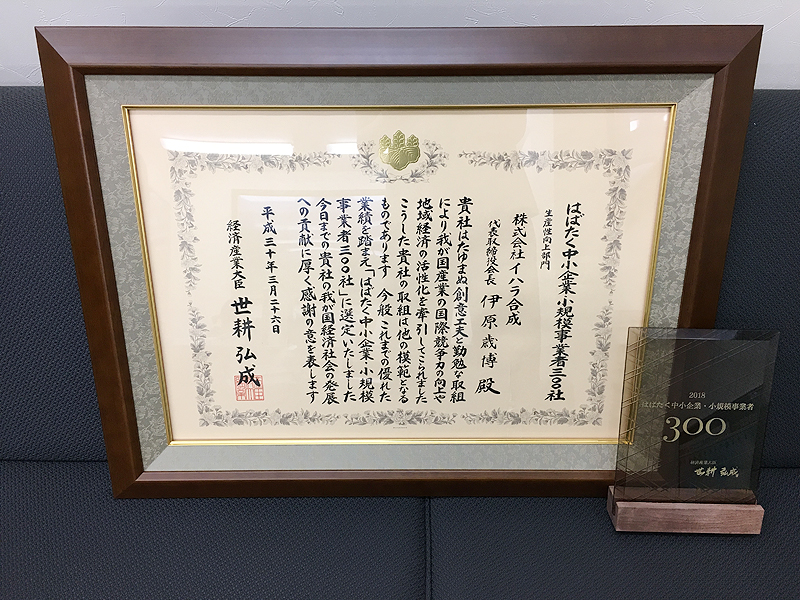 はばたく中小企業・小規模事業者三〇〇社
生産性向上部門
株式会社イハラ合成
代表取締役会長 伊原歳博 殿
貴社はたゆまぬ創意工夫と勤勉な取組
により我が国産業の国際競争力の向上や
地域経済の活性化を牽引してこられました
こうした貴社の取組は他の模範となる
ものであります 今般これまでの優れた
業績を踏まえ「はばたく中小企業・小規模
事業者三〇〇社」に選定いたしました
今日までの貴社の我が国経済社会の発展
への貢献に厚く感謝の意を表します
平成三十年三月二十六日
経済産業大臣 世耕弘成
2018
はばたく中小企業・小規模事業者
300
経済産業大臣
世耕弘成